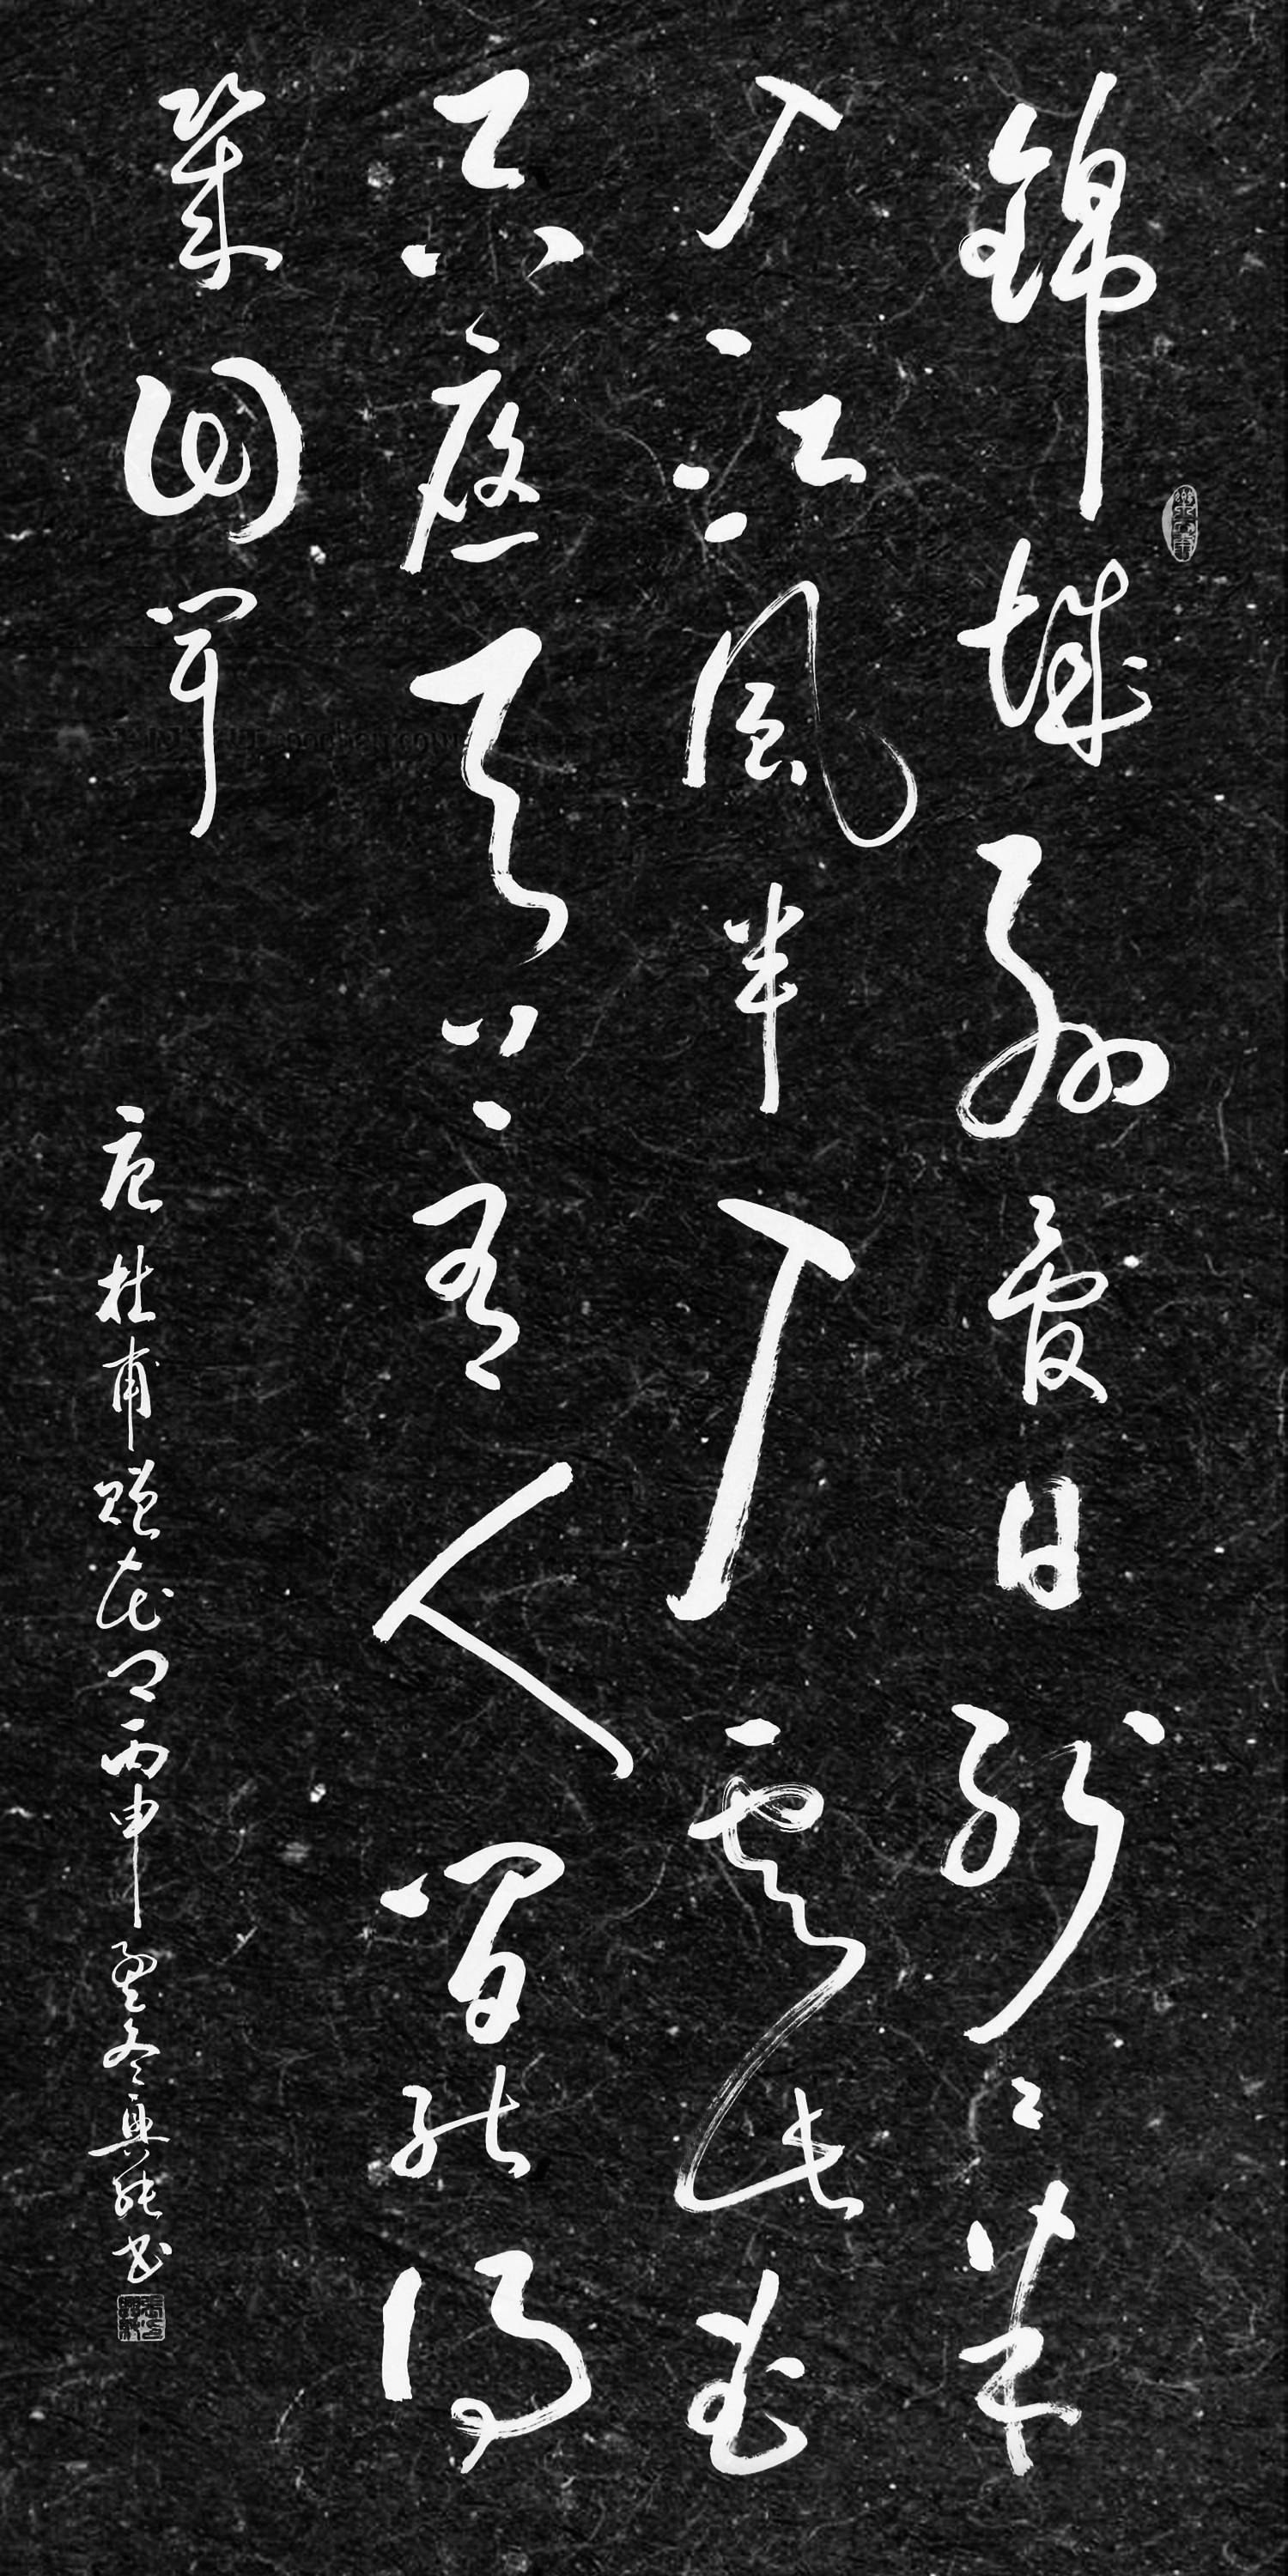 錦城絲管日紛〻半
入江風半入雲此曲
只應天上有人間能得
幾回聞
唐杜甫贈花卿丙申孟冬興書